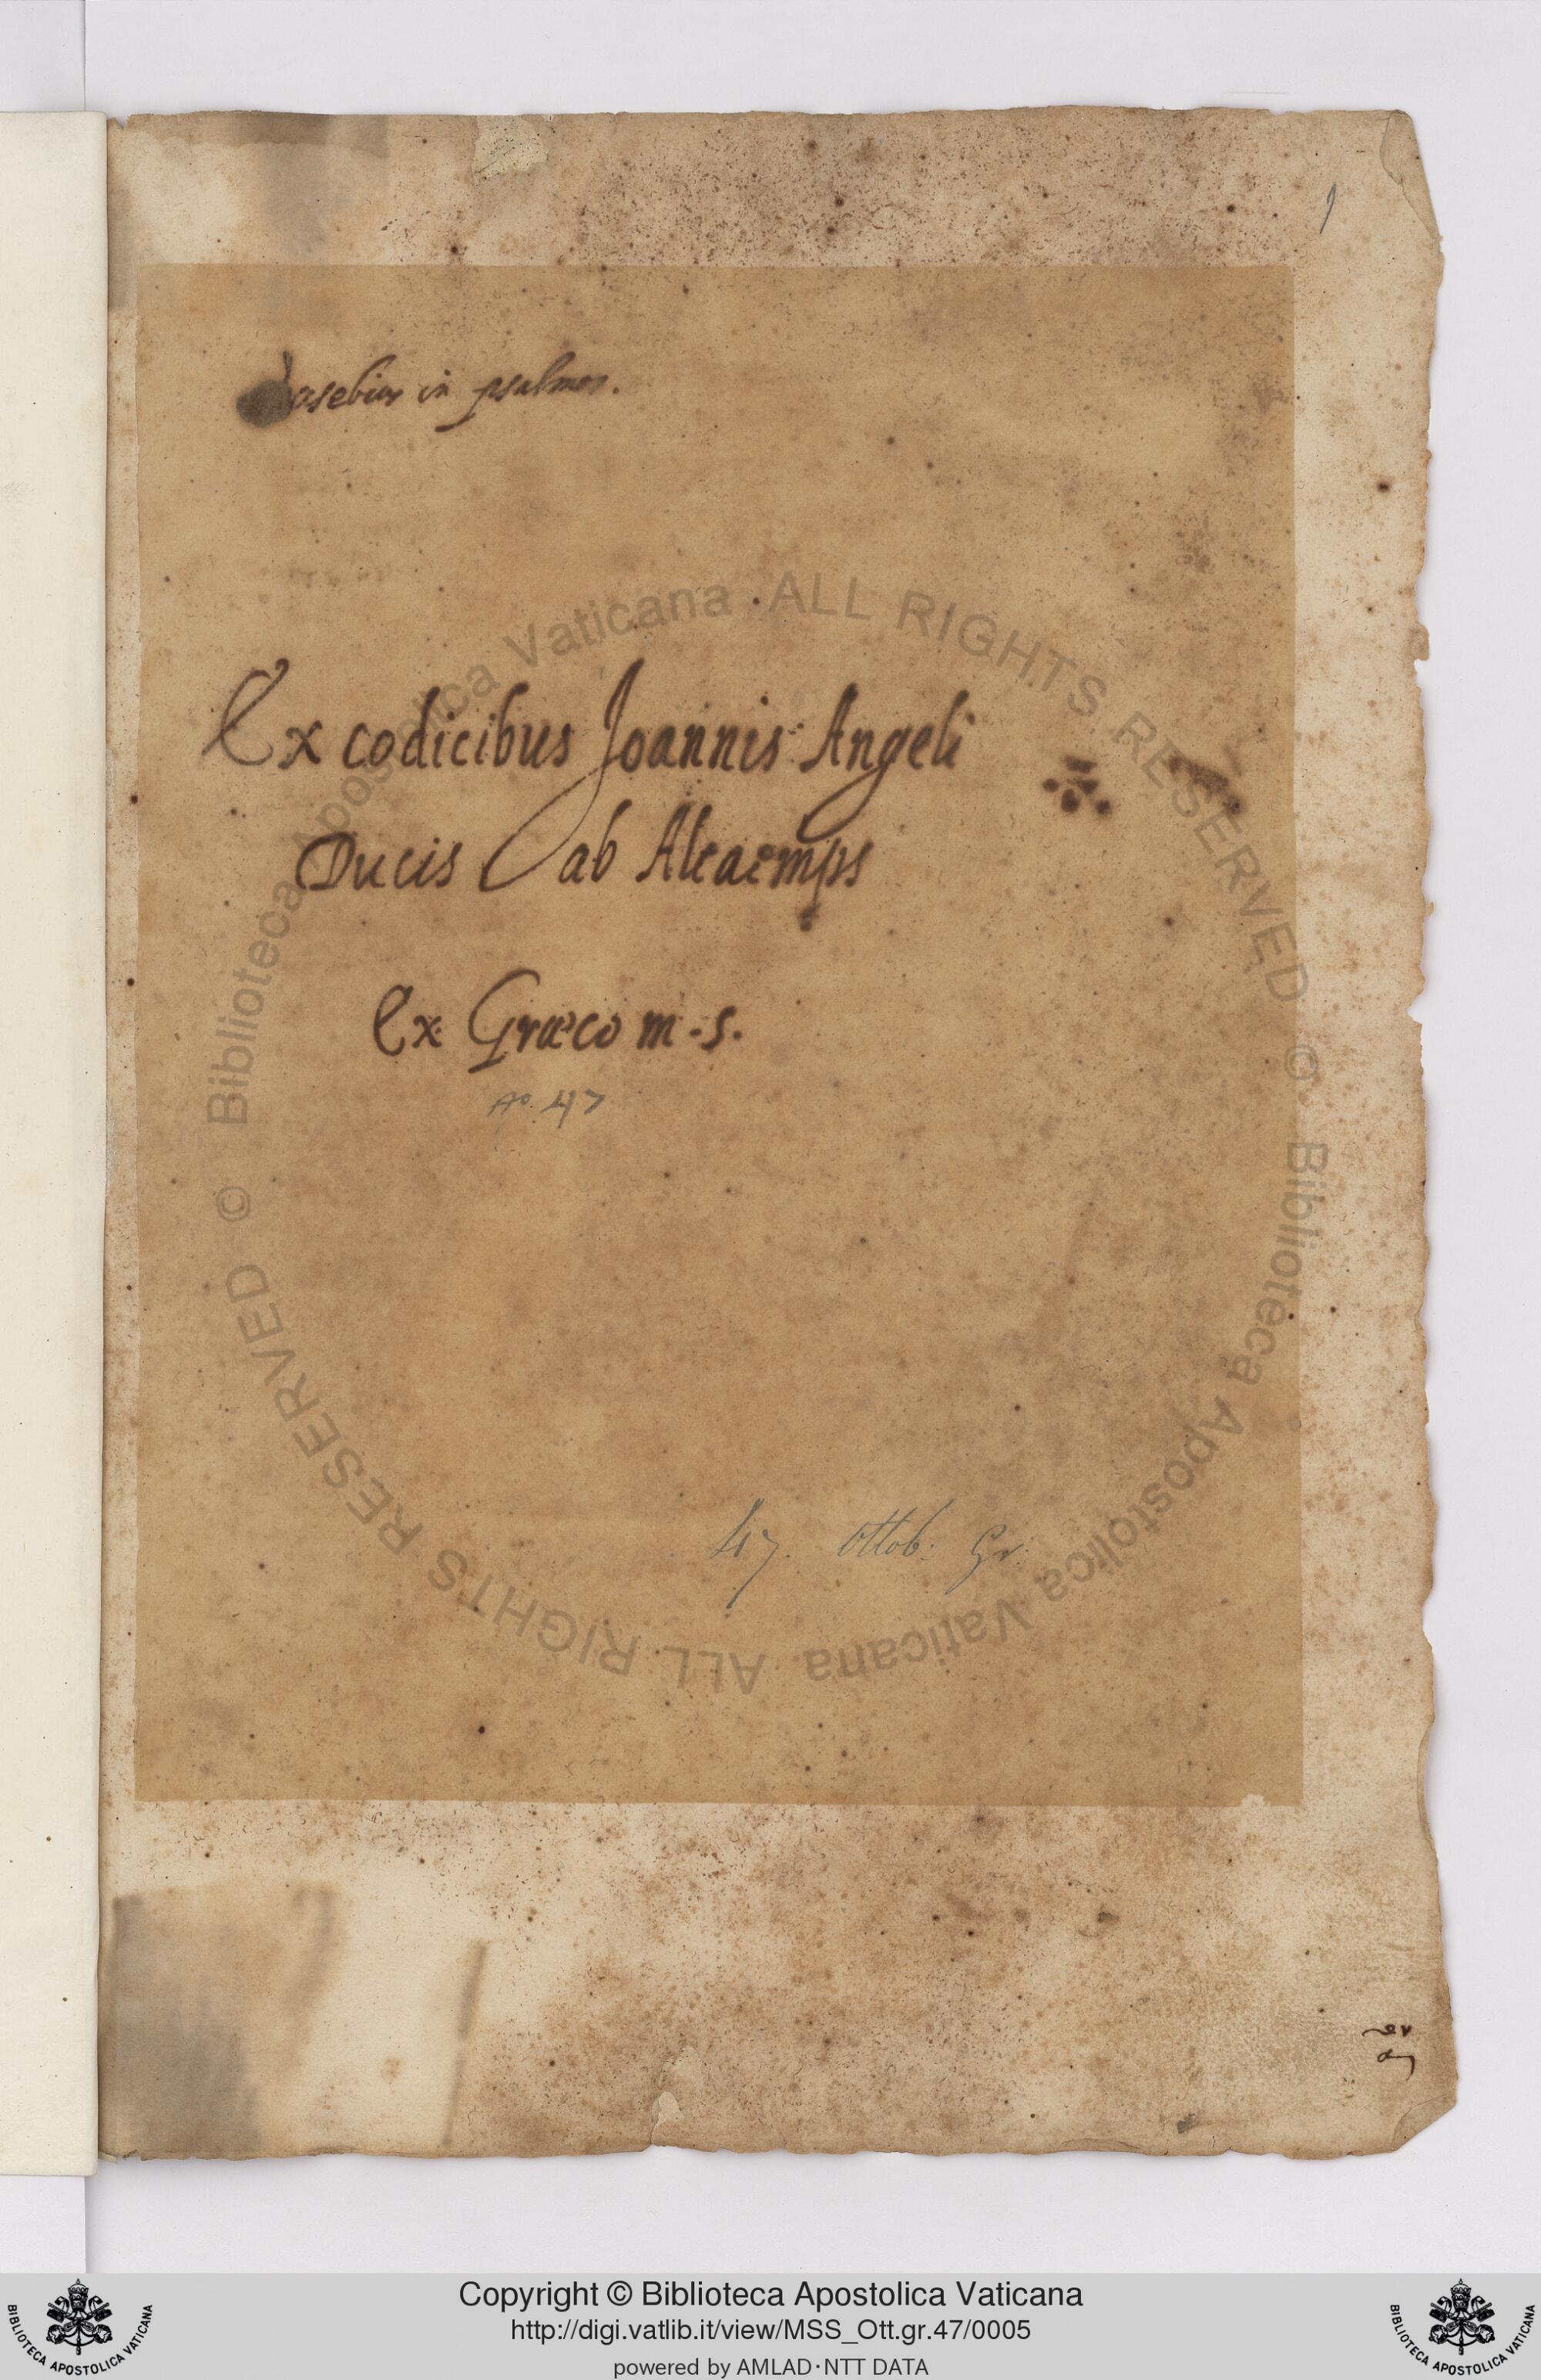 1
in psalmos.
Ex codicibus Joannis Angeli
Ducis ab Altaemps
Ex Græco m.s.
47
47. Ottob: Gr:
© Biblioteca Apostolica Vaticana ALL RIGHTS RESERVED © Biblioteca Apostolica Vaticana ALL RIGHTS RESERVED
Copyright © Biblioteca Apostolica Vaticana
http://digi.vatlib.it/view/MSS_Ott.gr.47/0005
powered by AMLAD·NTT DATA
BIBLIOTECA APOSTOLICA VATICANA
BIBLIOTECA APOSTOLICA VATICANA